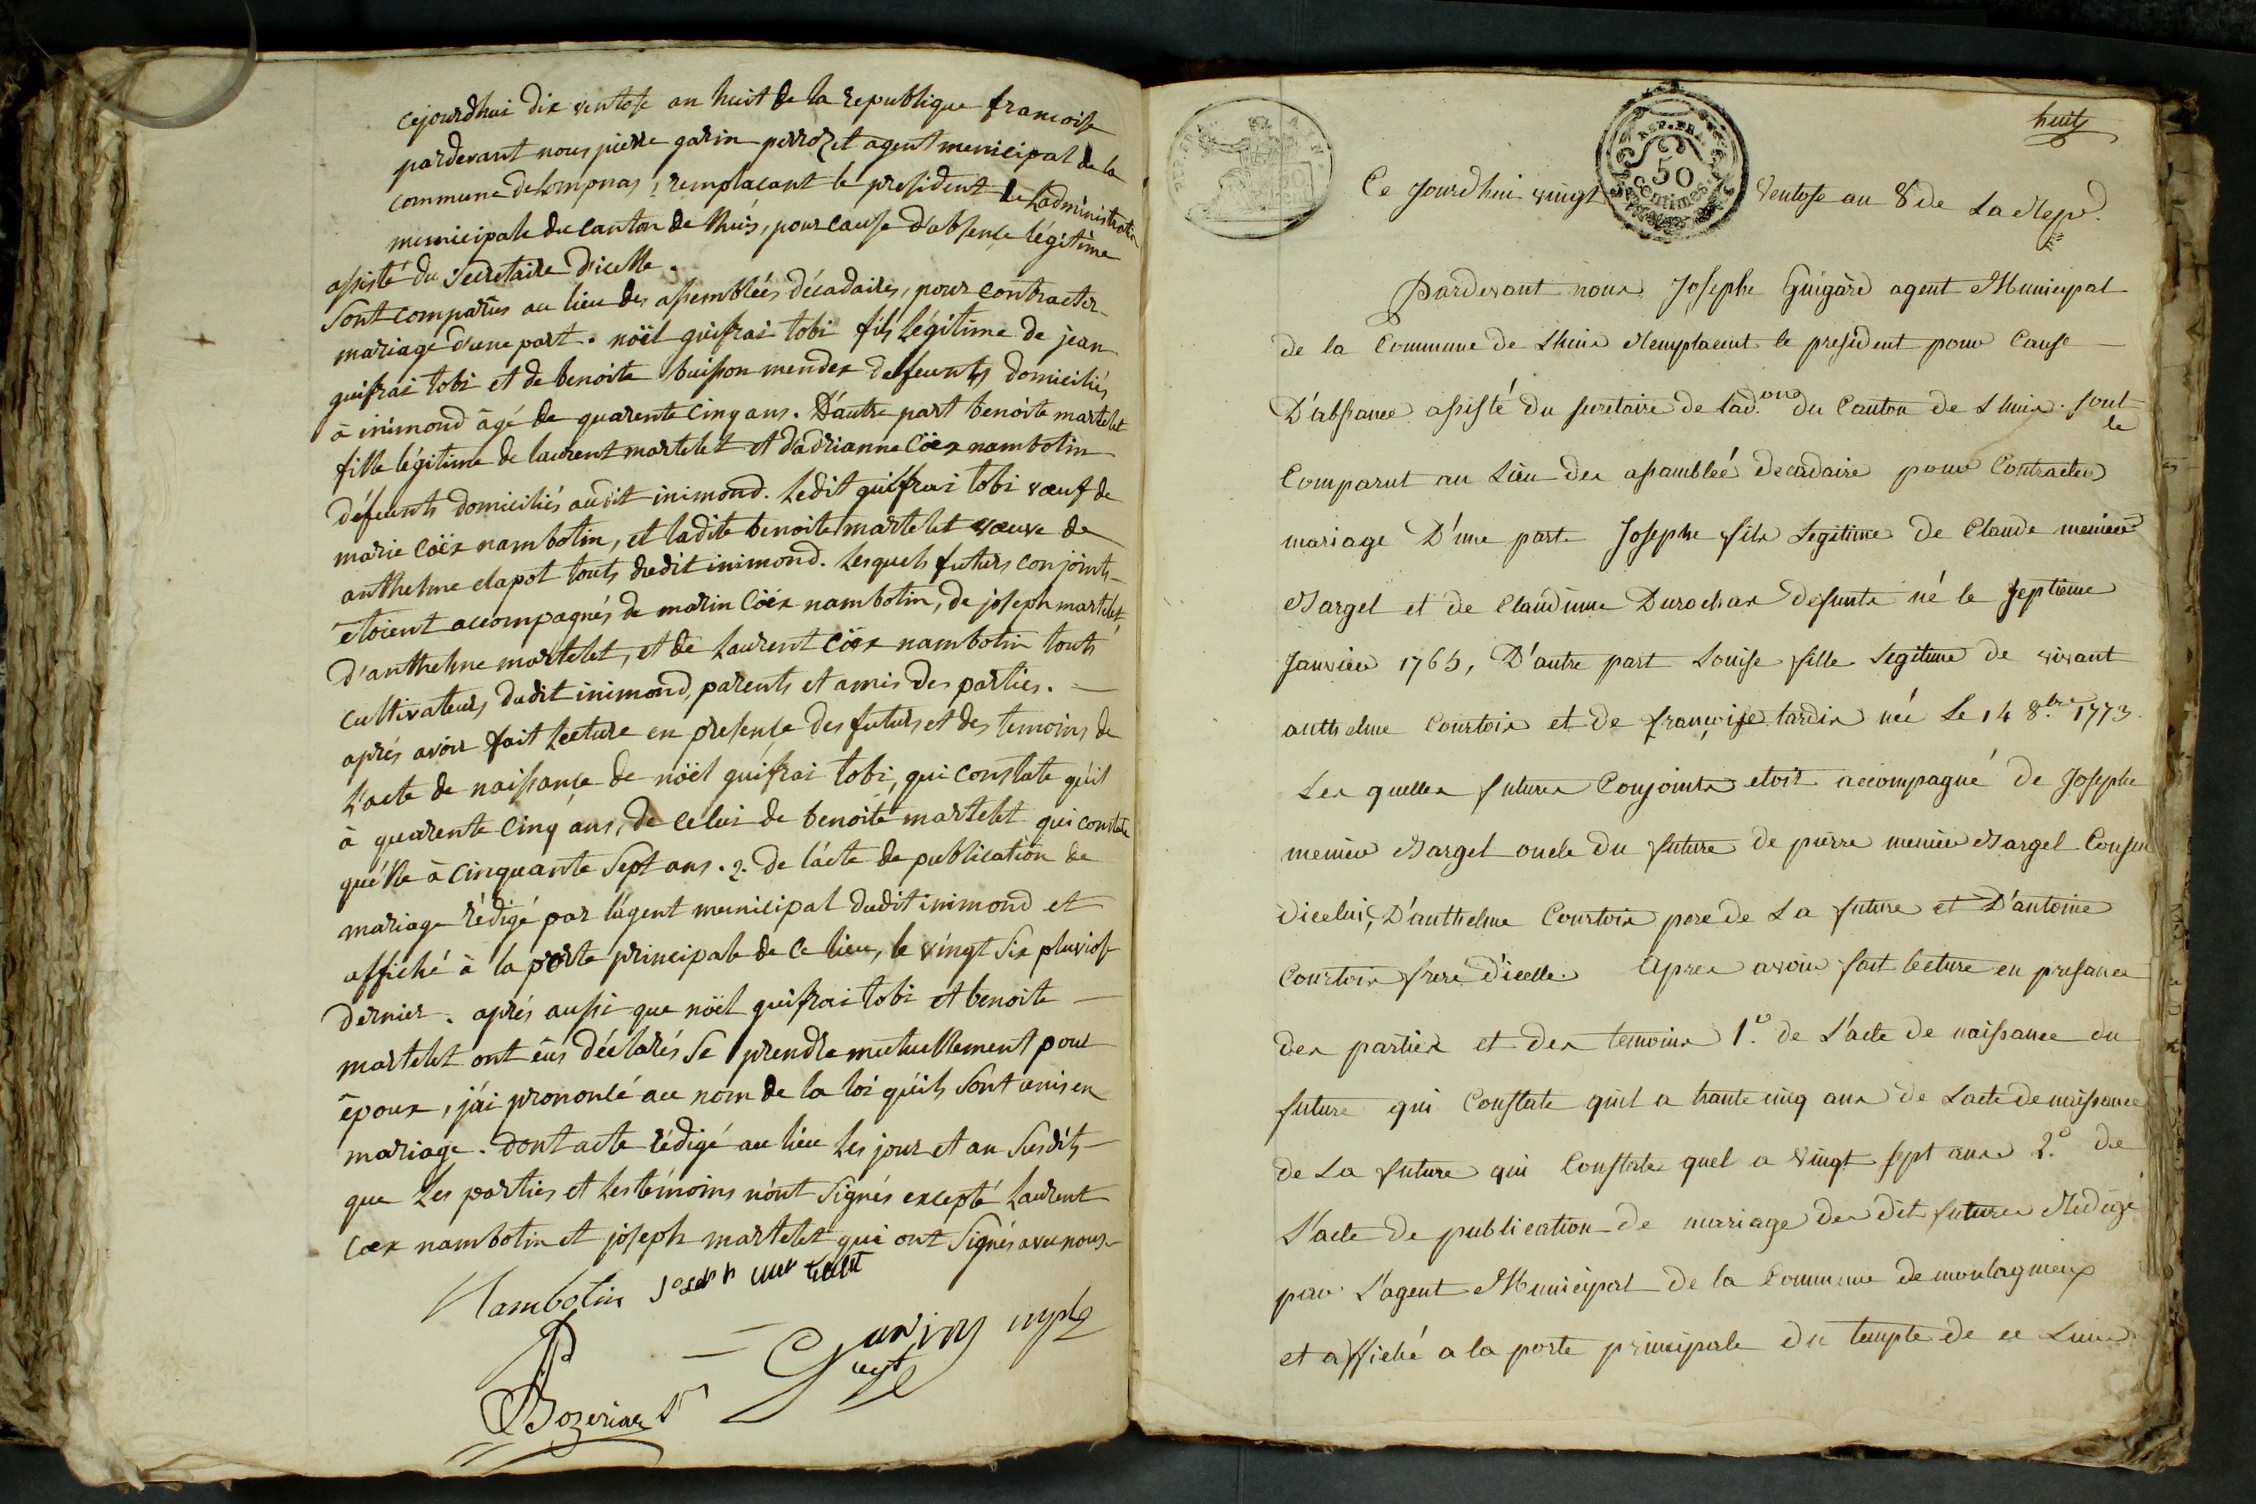 cejourdhui dix ventose an huit de la republique francoise
pardevant nous pierre garin perrozet agent municipal de la
commune de lompnas, remplaçant le president de Ladministration
municipale du canton de lhuis, pour cause d'absençe légitime
assisté du secretaire d'icelle.
Sont comparûs au lieu des assemblées décadaires, pour contracter
mariage d'une part. nöel guifrai tobi fils légitime de jean
guifrai tobi et de benoite buisson mendex deffeunts domiciliés
à inimond âgé de quarente cinq ans. D'autre part benoite martelet
fille légitime de laurent martelet et d'adrianne Cöex nambotin
défeunts domiciliés audit inimond. Ledit guifrai tobi vœuf de
marie cöex nambotin, et ladite benoite martelet vœuve de
anthelme clapot touts dudit inimond. Lesquels futurs conjoints
étoient accompagnés de marin Cöex nambotin, de joseph martelet,
d'anthelme martelet, et de Laurent Cöex nambotin touts
cultivateurs dudit inimond, parents et amis des parties.
aprés avoir fait Lecture en presençe des futurs et des temoins de
L'acte de naissançe de nöel guifrai tobi, qui constate qu'il
à quarente cinq ans, de celui de benoite martelet qui constate
qu'élle à cinquante sept ans. 2. de l'acte de publication de
mariage rédigé par l'agent municipal dudit inimond et
affiché à la porte principale de ce lieu, le vingt six pluviose
dernier. aprés aussi que nöel guifrai tobi et benoite
martelet ont éus déclarés se prendre mutuellement pour
époux, j'ai prononcé au nom de la loi qu'ils sont unis en
mariage. Dont acte rédigé au lieu les jour et an susdits
que les parties et les témoins n'ont signés excepté Laurent
cœx nambotin et joseph martelet qui ont signés avec nous
Nambotin Joseph martelet
Garin
agt
Bozerian Sre
huit
REP. FRA.
50
centimes
Ce Jourdhui vingt ventose an 8 de La Rep.
Pardevant nous Josephe Guigard agent Municipal
de la Commune de Lhuis Remplacent le president pour Cause
D'absance assisté du secretaire de Lad.on du Canton de Lhuis. sont
le
Comparut au Lieu des assamblée decadaire pour Contracter
mariage D'une part Josephe fils Legitime de Claude menieur
Bargel et de Claudinne Durochas defunts né le septieme
Janvier 1765, D'autre part Louise fille Legitime de vivant
anthelme Courtois et de françoise tardis née Le 14 8.bre 1773.
Les quelles futures Conjoints etoit accompagné de Josephe
menieur Bargel oncle du future de pierre menieur Bargel Cousin
dicelui, D'anthelme Courtois pere de La future et D'antoine
Courtois frere d'icelle. Apres avoir fait lecture en presance
des parties et des temoins 1.° de L'acte de naissance du
future qui Constate quil a trante cinq ans de Lacte de naissance
de La future qui Constate quel a vingt sept ans 2.° de
L'acte de publication de mariage des dit futures Rédigé
par L'agent Municipal de la Commune de montagnieux
et affiché a la porte principale du temple de ce Lieux